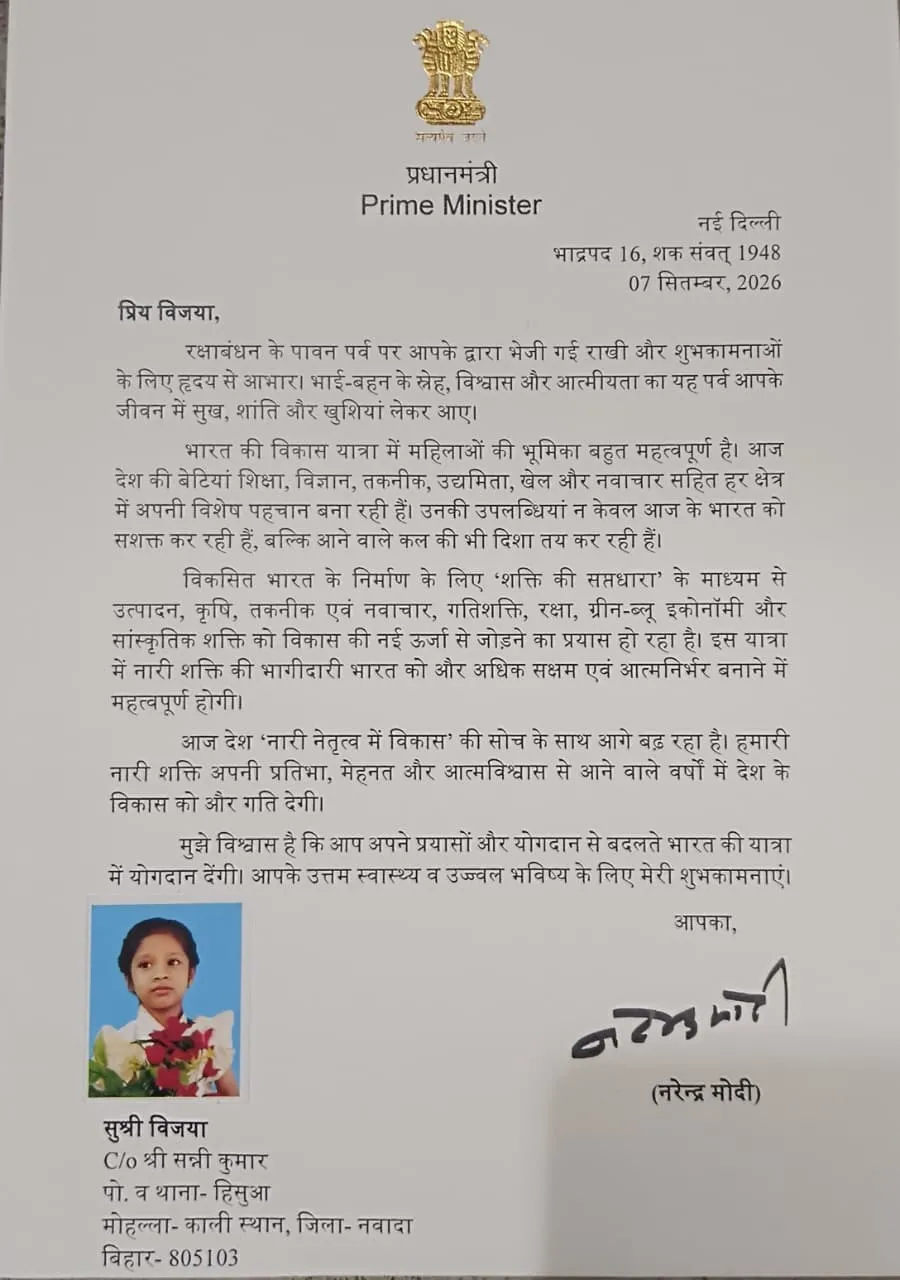 सत्यमेव जयते
प्रधानमंत्री
Prime Minister
नई दिल्ली
भाद्रपद 16, शक संवत् 1948
07 सितम्बर, 2026
प्रिय विजया,
रक्षाबंधन के पावन पर्व पर आपके द्वारा भेजी गई राखी और शुभकामनाओं
के लिए हृदय से आभार। भाई-बहन के स्नेह, विश्वास और आत्मीयता का यह पर्व आपके
जीवन में सुख, शांति और खुशियां लेकर आए।
भारत की विकास यात्रा में महिलाओं की भूमिका बहुत महत्वपूर्ण है। आज
देश की बेटियां शिक्षा, विज्ञान, तकनीक, उद्यमिता, खेल और नवाचार सहित हर क्षेत्र
में अपनी विशेष पहचान बना रही हैं। उनकी उपलब्धियां न केवल आज के भारत को
सशक्त कर रही हैं, बल्कि आने वाले कल की भी दिशा तय कर रही हैं।
विकसित भारत के निर्माण के लिए ‘शक्ति की सप्तधारा’ के माध्यम से
उत्पादन, कृषि, तकनीक एवं नवाचार, गतिशक्ति, रक्षा, ग्रीन-ब्लू इकोनॉमी और
सांस्कृतिक शक्ति को विकास की नई ऊर्जा से जोड़ने का प्रयास हो रहा है। इस यात्रा
में नारी शक्ति की भागीदारी भारत को और अधिक सक्षम एवं आत्मनिर्भर बनाने में
महत्वपूर्ण होगी।
आज देश ‘नारी नेतृत्व में विकास’ की सोच के साथ आगे बढ़ रहा है। हमारी
नारी शक्ति अपनी प्रतिभा, मेहनत और आत्मविश्वास से आने वाले वर्षों में देश के
विकास को और गति देगी।
मुझे विश्वास है कि आप अपने प्रयासों और योगदान से बदलते भारत की यात्रा
में योगदान देंगी। आपके उत्तम स्वास्थ्य व उज्ज्वल भविष्य के लिए मेरी शुभकामनाएं।
आपका,
नरेन्द्र मोदी
(नरेन्द्र मोदी)
सुश्री विजया
C/o श्री सन्नी कुमार
पो. व थाना- हिसुआ
मोहल्ला- काली स्थान, जिला- नवादा
बिहार- 805103